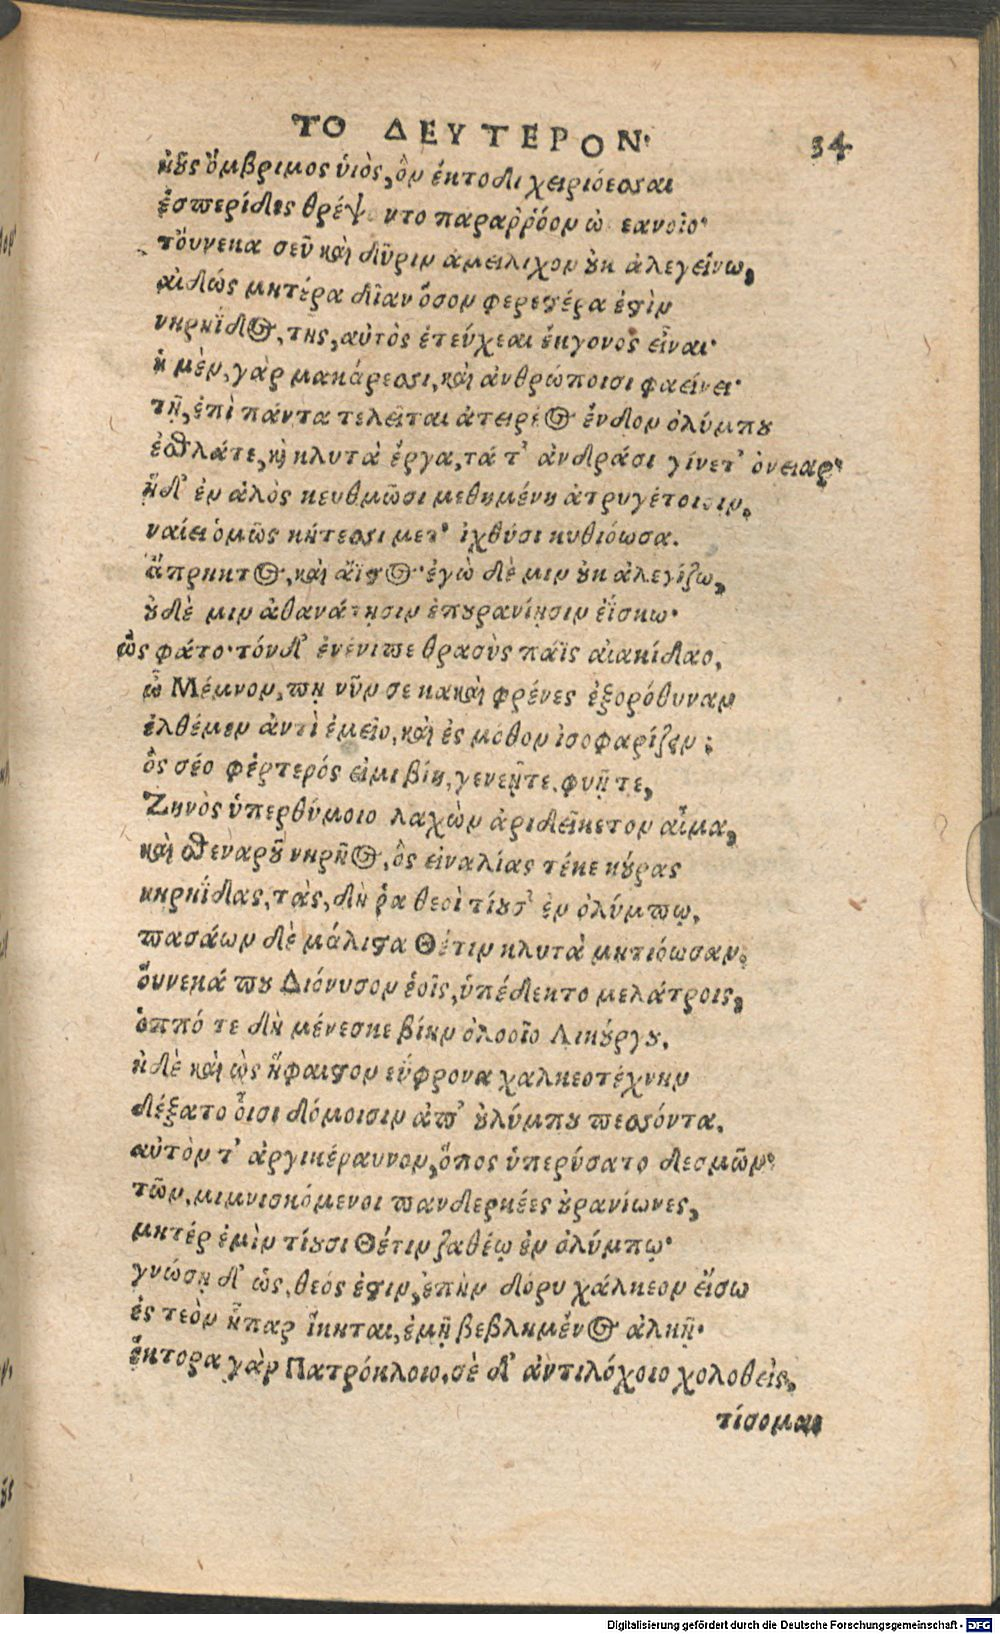 ΤΟ ΔΕΥΤΕΡΟΝ· 34
ἠοῦς ὄμβριμος ὑιὸς, ὃν ἔκτοθι χειριόεσσαι
ἑσπερίδες θρέψ ντο παραῤῥόον ὠ εανοῖο·
τὄυνεκα σεῦ καὶ δῦριν ἀμείλιχον οὐκ ἀλεγείνω,
αἰδὼς μητέρα δῖαν ὅσον φερεστέρα ἐστὶν
νηρηΐδος, της, αὐτὸς ἐτεύχεαι ἔκγονος εἶναι·
ἡ μὲν, γὰρ μακάρεσσι, καὶ ἀνθρώποισι φαείνει·
τῇ, ἐπὶ πάντα τελεῖται ἀτειρέος ἔνδον ὀλύμπου
ἐσθλάτε, καὶ κλυτὰ ἔργα, τά τ' ἀνδράσι γίνετ' ὀνειαρ·
ἡ δ' ἐν ἁλὸς κευθμῶσι μεθημένη ἀτρυγέτοισιν.
ναίει ὁμῶς κήτεσσι μετ' ἰχθύσι κυθιόωσα.
ἄπρηκτος, καὶ ἄϊστος· ἐγὼ δὲ μιν οὐκ ἀλεγίζω,
οὐδὲ μιν ἀθανάτῃσιν ἐπουρανίῃσιν ἐΐσκω·
ὣς φάτο· τόνδ' ἐνένιπε θρασὺς πάϊς αἰακίδαο,
ὦ Μέμνον, πῃ νῦν σε κακαὶ φρένες ἐξορόθυναν
ἐλθέμεν ἀντὶ ἐμεῖο, καὶ ἐς μόθον ἰσοφαρίζειν ;
ὃς σέο φέρτερός εἰμι βίῃ, γενεῇτε, φυῇ τε,
Ζηνὸς ὑπερθύμοιο λαχὼν ἀριδείκετον αἷμα,
καὶ σθεναροῦ νηρῆος, ὃς εἰναλίας τέκε κούρας
νηρηΐδας, τὰς, δή ῥα θεοὶ τίουσ' ἐν ὀλύμπῳ.
πασάων δὲ μάλιστα Θέτιν κλυτὰ μητιόωσαν.
ὅυνεκά που Διόνυσον ἑοῖς, ὑπέδεκτο μελάτροις,
ὁππό τε δὴ μένεσκε βίην ὀλοοῖο Λικούργου.
ἠδὲ καὶ ὡς ἥφαιστον εὔφρονα χαλκεοτέχνην
δέξατο οἷσι δόμοισιν ἀπ' οὐλύμπου πεσόντα.
αὐτὸν τ' ἀργικέραυνον, ὅπος ὑπερύσατο δεσμῶν·
τῶν, μιμνισκόμενοι πανδερκέες οὐρανίωνες,
μητέρ ἐμὴν τίουσι Θέτιν ζαθέῳ ἐν ὀλύμπῳ·
γνώσῃ δ' ὡς, θεός ἐστιν, ἐπὴν δόρυ χάλκεον εἴσω
ἐς τεὸν ἧπαρ ἵκηται, ἐμῇ βεβλημένος ἀλκῇ·
ἕκτορα γὰρ Πατρόκλοιο, σὲ δ' ἀντιλόχοιο χολοθείς,
τίσομαι
Digitalisierung gefördert durch die Deutsche Forschungsgemeinschaft - DFG